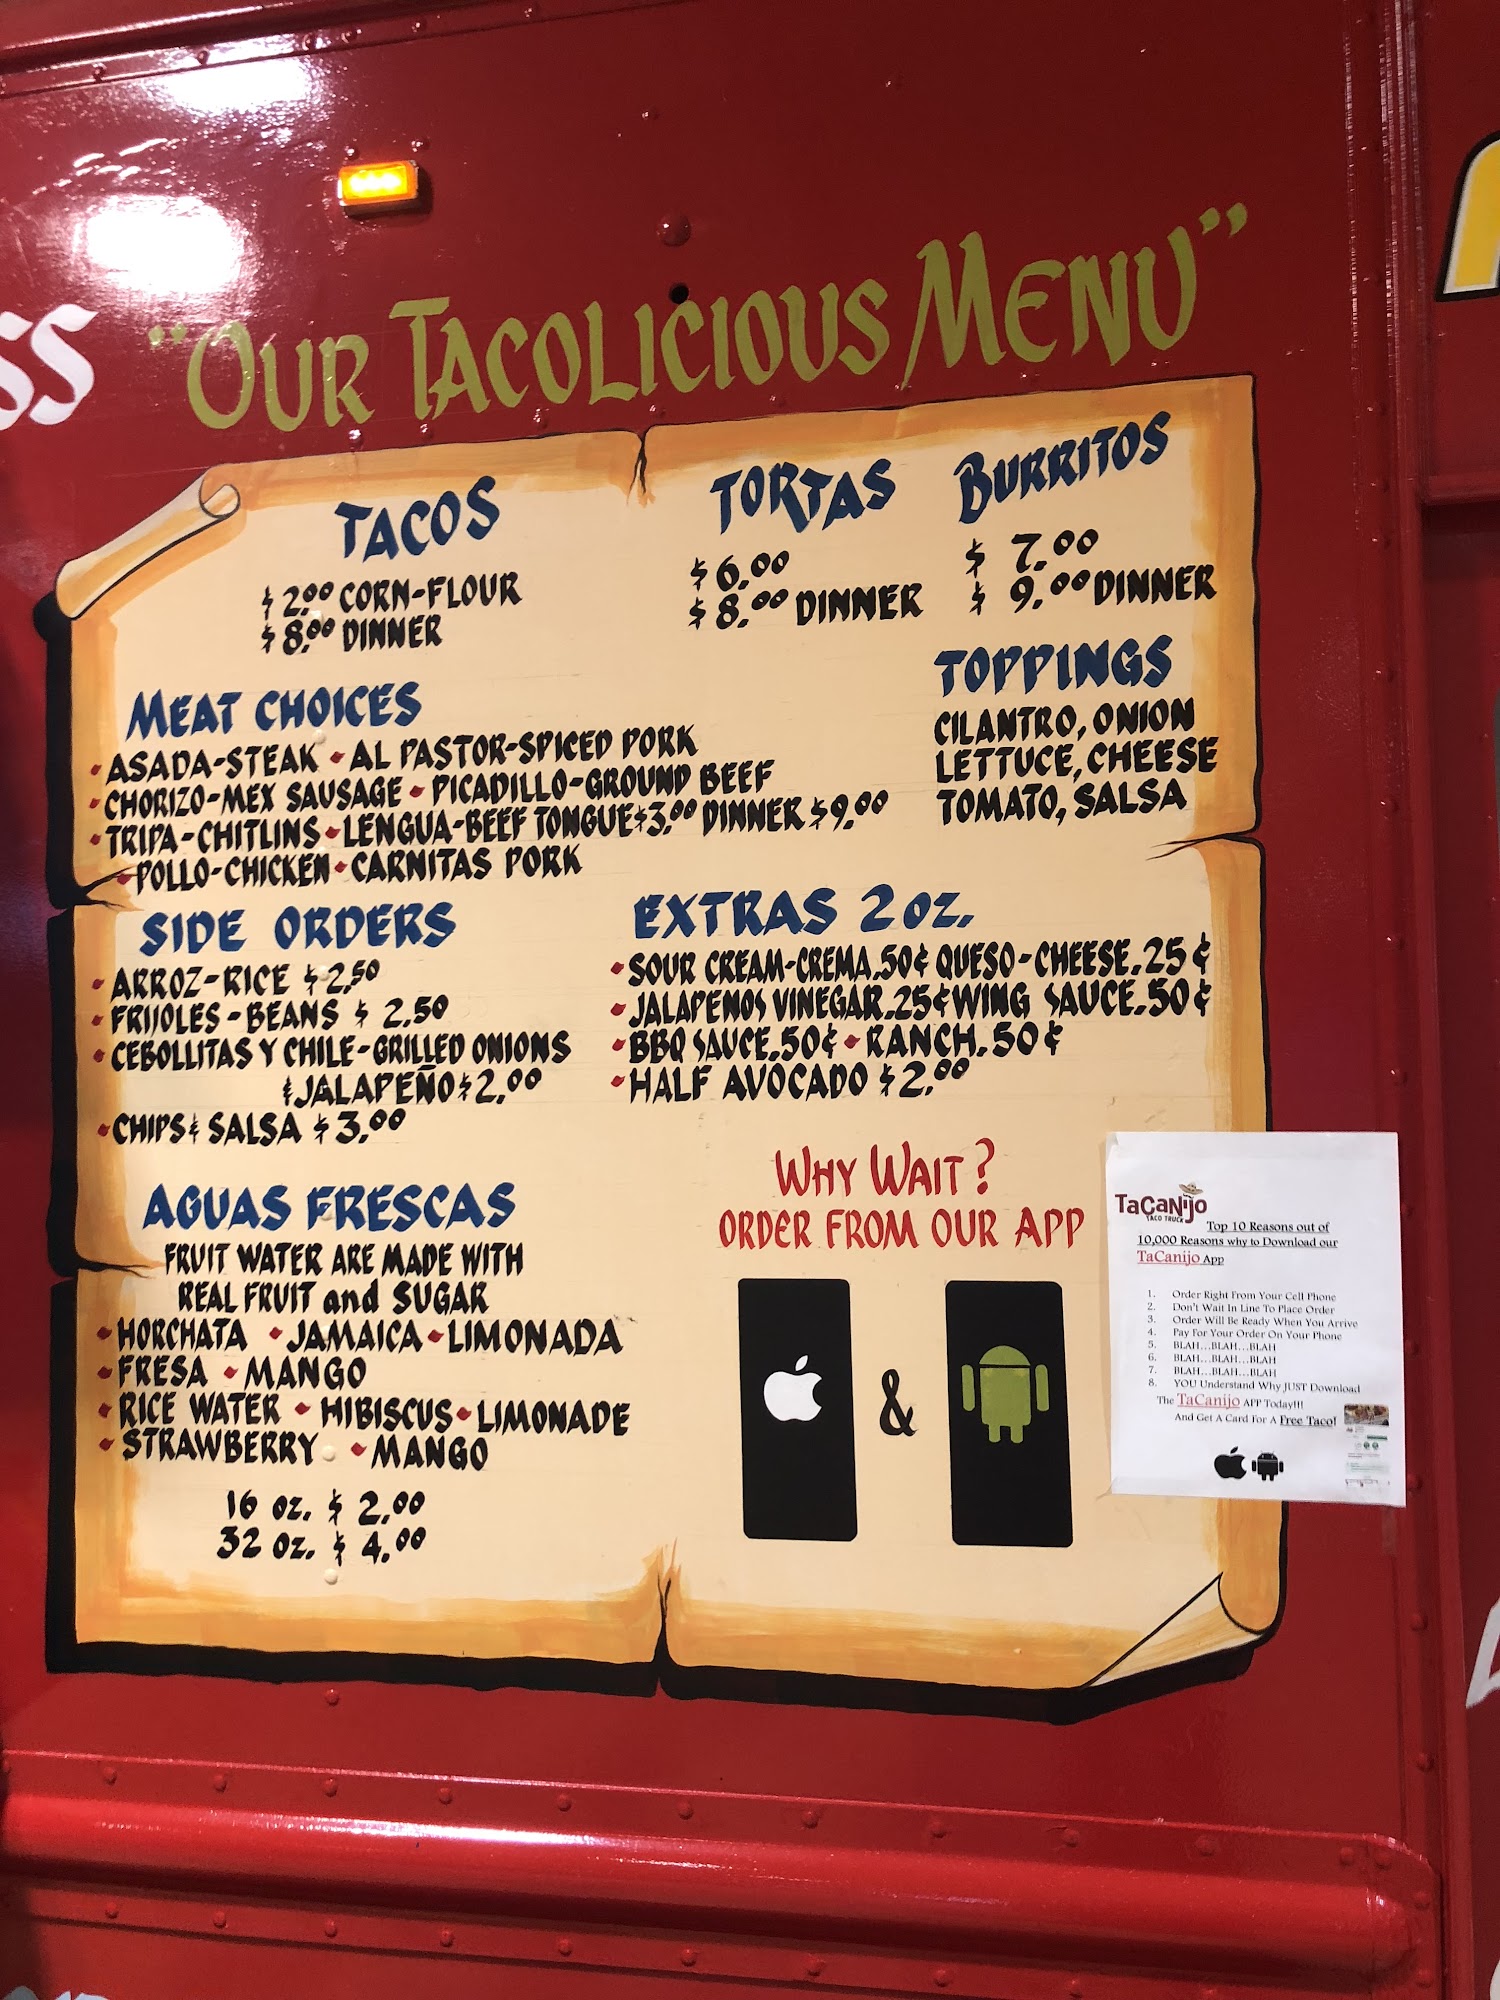 SS
"OUR TACOLICIOUS MENU"
TACOS
$2.00 CORN-FLOUR
$8.00 DINNER
TORTAS
$6.00
$8.00 DINNER
BURRITOS
$ 7.00
$ 9.00 DINNER
TOPPINGS
CILANTRO, ONION
LETTUCE, CHEESE
TOMATO, SALSA
MEAT CHOICES
• ASADA-STEAK • AL PASTOR-SPICED PORK
• CHORIZO-MEX SAUSAGE • PICADILLO-GROUND BEEF
• TRIPA-CHITLINS • LENGUA-BEEF TONGUE $3.00 DINNER $9.00
• POLLO-CHICKEN • CARNITAS PORK
SIDE ORDERS
• ARROZ-RICE $2.50
• FRIJOLES-BEANS $ 2.50
• CEBOLLITAS Y CHILE-GRILLED ONIONS
& JALAPEÑO $2.00
• CHIPS & SALSA $3.00
EXTRAS 2 OZ.
• SOUR CREAM-CREMA .50¢ QUESO-CHEESE .25¢
• JALAPENOS VINEGAR .25¢ WING SAUCE .50¢
• BBQ SAUCE .50¢ • RANCH .50¢
• HALF AVOCADO $2.00
AGUAS FRESCAS
FRUIT WATER ARE MADE WITH
REAL FRUIT and SUGAR
• HORCHATA • JAMAICA • LIMONADA
• FRESA • MANGO
• RICE WATER • HIBISCUS • LIMONADE
• STRAWBERRY • MANGO
16 OZ. $ 2.00
32 OZ. $ 4.00
WHY WAIT?
ORDER FROM OUR APP
&
TaCaNijo
TACO TRUCK
Top 10 Reasons out of
10,000 Reasons why to Download our
TaCanijo App
1. Order Right From Your Cell Phone
2. Don't Wait In Line To Place Order
3. Order Will Be Ready When You Arrive
4. Pay For Your Order On Your Phone
5. BLAH...BLAH...BLAH
6. BLAH...BLAH...BLAH
7. BLAH...BLAH...BLAH
8. YOU Understand Why JUST Download
The TaCanijo APP Today!!!
And Get A Card For A Free Taco!